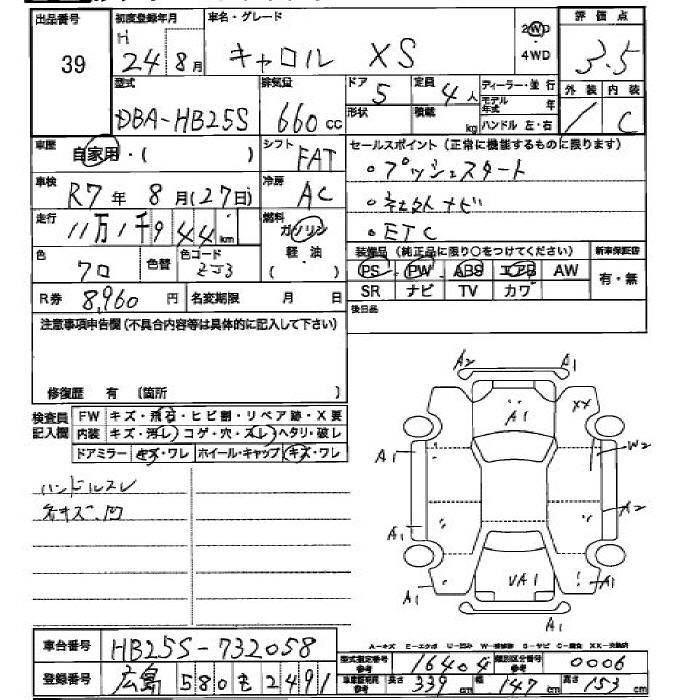 出品番号 初度登録年月 車名・グレード 評価点
39 H 24年 8月 キャロル XS 2WD ・ 4WD 3.5
型式 排気量 ドア 定員 ディーラー・並行 外装 内装
DBA-HB25S 660cc 5 4人 モデル年式 年 / C
形状 積載 kg ハンドル 左・右
車歴 自家用・( ) シフト FAT セールスポイント(正常に機能するものに限ります)
・プッシュスタート
車検 R7年 8月(27日) 冷房 AC
・社外ナビ
走行 11万1千944km 燃料 ガソリン 軽・油 ( ・ )
・ETC
色 クロ 色替 色コード ZJ3
装備品(純正品に限り○をつけてください) 新車保証書
PS PW ABS エアB AW 有・無
R券 8,960円 名変期限 月 日 SR ナビ TV カワ
後日品
注意事項申告欄(不具合内容等は具体的に記入して下さい)
修復歴 有 〔箇所 〕
検査員記入欄 FW キズ・飛石・ヒビ割・リペア跡・X要
内装 キズ・汚レ・コゲ・穴・スレ・ヘタリ・破レ
ドアミラー キズ・ワレ ホイール・キャップ キズ・ワレ
ハンドルスレ
A2 A1
A1 XX
A1 W2
A2
A1
UA1
A1 A1
A1
A-キズ E-エクボ U-凹み W-補修跡 S-サビ C-腐食 XX-交換済
車台番号 HB25S-732058
型式指定番号 参考 16404 類別区分番号 参考 0006
登録番号 広島 580 を 2491
車庫証明用 参考 長さ 339cm 幅 147cm 高さ 153cm